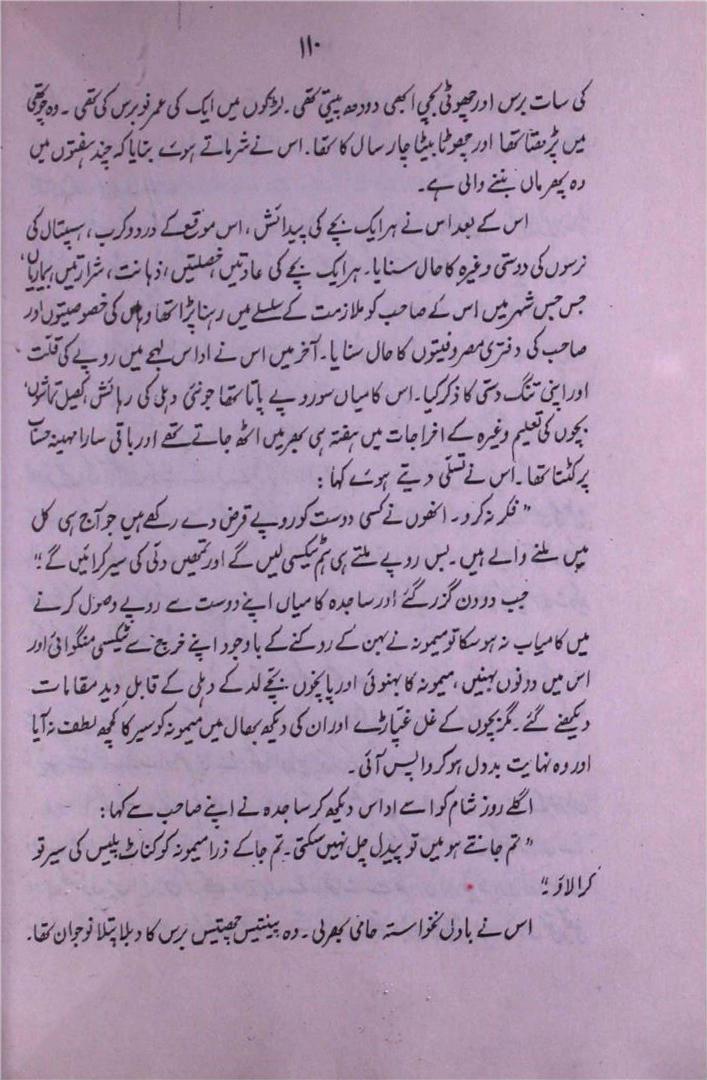 ۱۱۰
کی سات برس اور چھوٹی بچی ابھی دودھ پیتی تھی۔ لڑکوں میں ایک کی عمر نو برس کی تھی۔ وہ چوتھی
میں پڑھتا تھا اور چھوٹا بیٹا چار سال کا تھا۔ اس نے شرماتے ہوئے بتایا کہ چند ہفتوں میں
وہ پھر ماں بننے والی ہے۔
اس کے بعد اس نے ہر ایک بچے کی پیدائش، اس موقع کے درد و کرب، ہسپتال کی
نرسوں کی دوستی وغیرہ کا حال سنایا۔ ہر ایک بچے کی عادتیں خصلتیں، ذہانت، شرارتیں، بیماریاں،
جس جس شہر میں اس کے صاحب کو ملازمت کے سلسلے میں رہنا پڑا تھا وہاں کی خصوصیتوں اور
صاحب کی دفتری مصروفیتوں کا حال سنایا۔ آخر میں اس نے اداس لہجے میں روپے کی قلت
اور اپنی تنگ دستی کا ذکر کیا۔ اس کا میاں سو روپے پاتا تھا جو نئی دہلی کی رہائش، کھیل تماشوں،
بچوں کی تعلیم وغیرہ کے اخراجات میں ہفتہ ہی بھر میں اٹھ جاتے تھے اور باقی سارا مہینہ حساب
پر کٹتا تھا۔ اس نے تسلی دیتے ہوئے کہا:
"فکر نہ کرو۔ انھوں نے کسی دوست کو روپے قرض دے رکھے ہیں جو آج ہی کل
میں ملنے والے ہیں۔ بس روپے ملتے ہی ہم ٹیکسی لیں گے اور تمھیں دلّی کی سیر کرائیں گے۔"
جب دو دن گزر گئے اور ساجدہ کا میاں اپنے دوست سے روپے وصول کرنے
میں کامیاب نہ ہو سکا تو میمونہ نے بہن کے روکنے کے باوجود اپنے خرچ سے ٹیکسی منگوائی اور
اس میں دونوں بہنیں، میمونہ کا بہنوئی اور پانچوں بچے لد کے دہلی کے قابل دید مقامات
دیکھنے گئے۔ مگر بچوں کے غل غپاڑے اور ان کی دیکھ بھال میں میمونہ کو سیر کا کچھ لطف نہ آیا
اور وہ نہایت بد دل ہو کر واپس آئی۔
اگلے روز شام کو اسے اداس دیکھ کر ساجدہ نے اپنے صاحب سے کہا:
"تم جانتے ہو میں تو پیدل چل نہیں سکتی۔ تم جا کے ذرا میمونہ کو کناٹ پلیس کی سیر تو
کرا لاؤ۔"
اس نے بادل نخواستہ حامی بھر لی۔ وہ پینتیس چھتیس برس کا دبلا پتلا نوجوان تھا۔